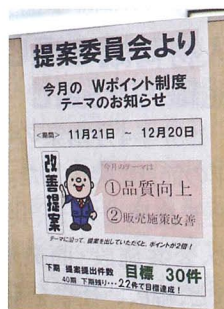 提案委員会より
今月の Wポイント制度
テーマのお知らせ
<期間> 11月21日 ~ 12月20日
改善提案
今月のテーマは
①品質向上
②販売施策改善
テーマに沿って、提案を出していただくと、ポイントが2倍!
下期 提案提出件数 目標 30件
40期 下期残り・・・22件で目標達成!